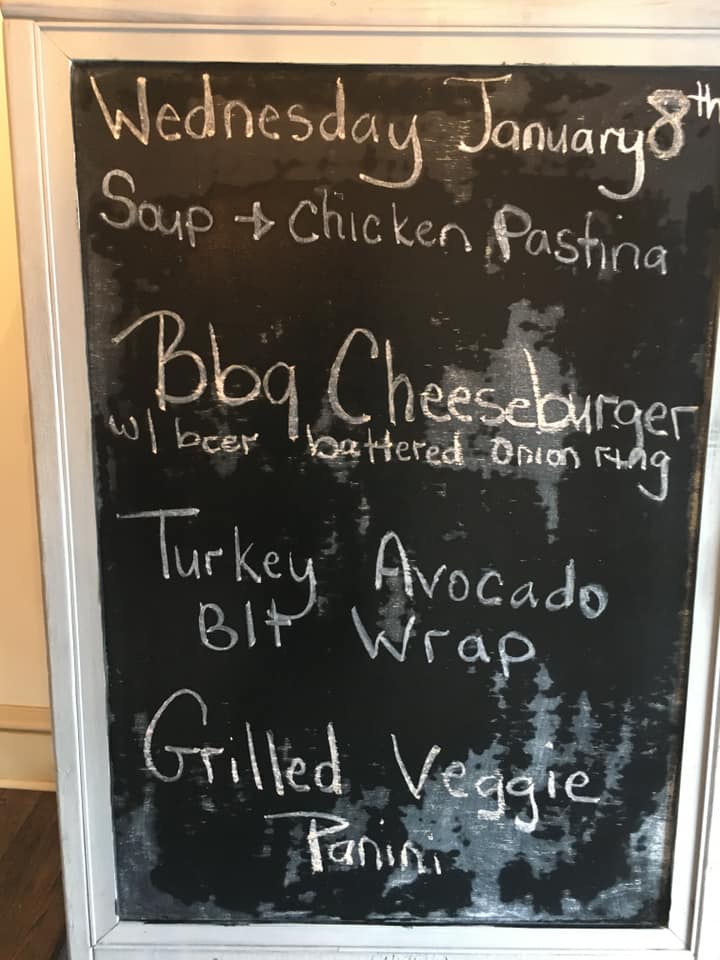 Wednesday January 8th
Soup → Chicken Pastina
Bbq Cheeseburger
w/ beer battered onion ring
Turkey Avocado
Blt Wrap
Grilled Veggie
Panini